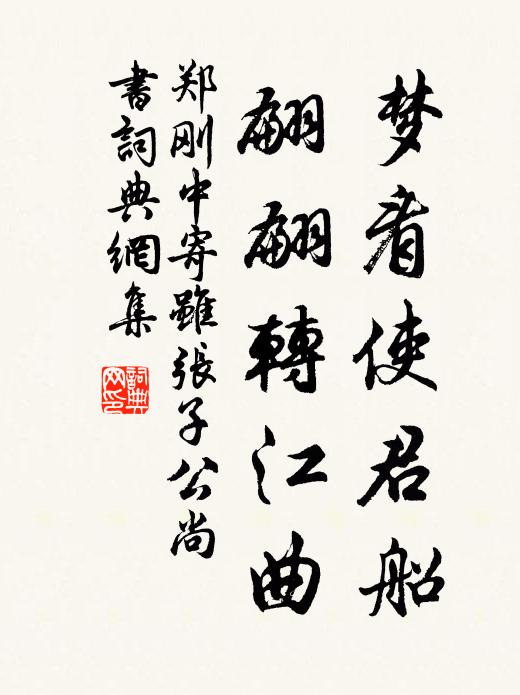 梦看使君船
翩翩轉江曲
郑刚中寄雖張子公尚
書詞典網集
詞典网印